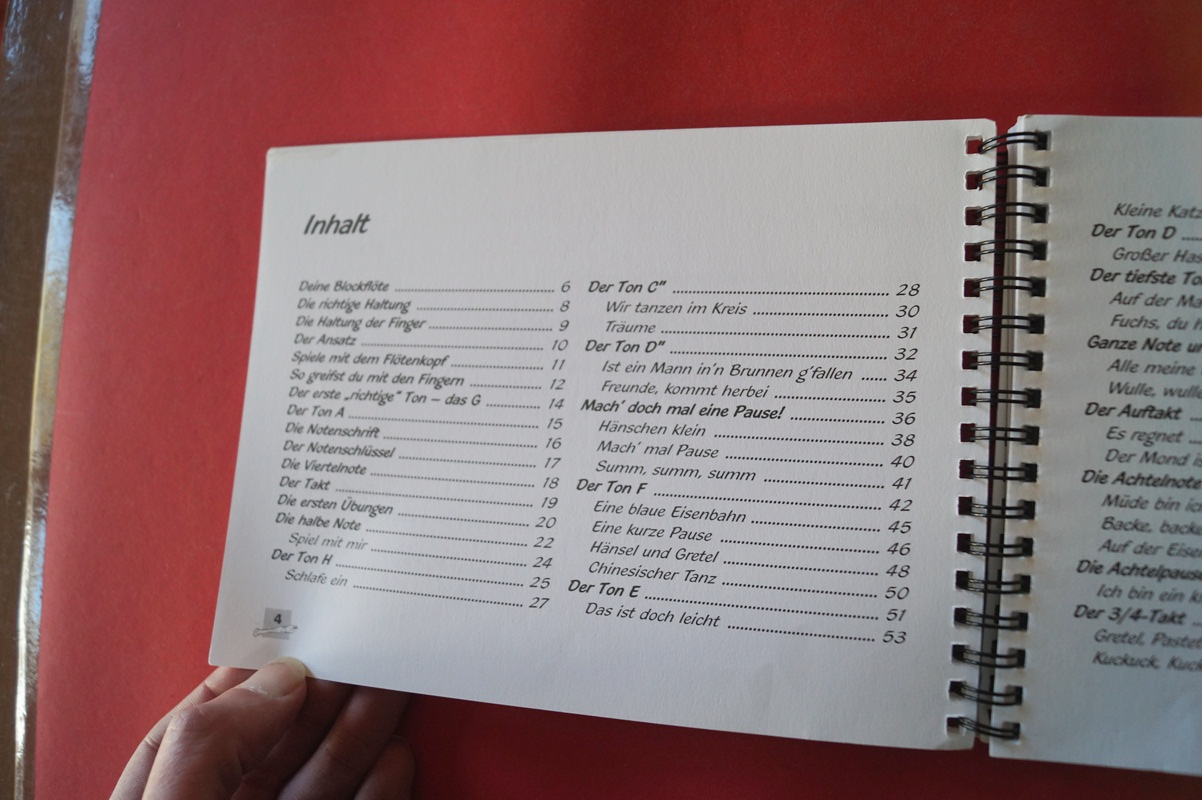 Inhalt
Deine Blockflöte ... 6
Die richtige Haltung ... 8
Die Haltung der Finger ... 9
Der Ansatz ... 10
Spiele mit dem Flötenkopf ... 11
So greifst du mit den Fingern ... 12
Der erste „richtige" Ton – das G ... 14
Der Ton A ... 15
Die Notenschrift ... 16
Der Notenschlüssel ... 17
Die Viertelnote ... 18
Der Takt ... 19
Die ersten Übungen ... 20
Die halbe Note ... 22
Spiel mit mir ... 24
Der Ton H ... 25
Schlafe ein ... 27
4
Der Ton C" ... 28
Wir tanzen im Kreis ... 30
Träume ... 31
Der Ton D" ... 32
Ist ein Mann in'n Brunnen g'fallen ... 34
Freunde, kommt herbei ... 35
Mach' doch mal eine Pause! ... 36
Hänschen klein ... 38
Mach' mal Pause ... 40
Summ, summ, summ ... 41
Der Ton F ... 42
Eine blaue Eisenbahn ... 45
Eine kurze Pause ... 46
Hänsel und Gretel ... 48
Chinesischer Tanz ... 50
Der Ton E ... 51
Das ist doch leicht ... 53
Kleine Katz
Der Ton D ...
Großer Has
Der tiefste To
Auf der Ma
Fuchs, du
Ganze Note
Alle meine
Wulle, wull
Der Auftakt
Es regnet
Der Mond is
Die Achtelnote
Müde bin ich
Backe, back
Auf der Eise
Die Achtelpaus
Ich bin ein
Der 3/4-Takt ...
Gretel, Pastet
Kuckuck, Kuck